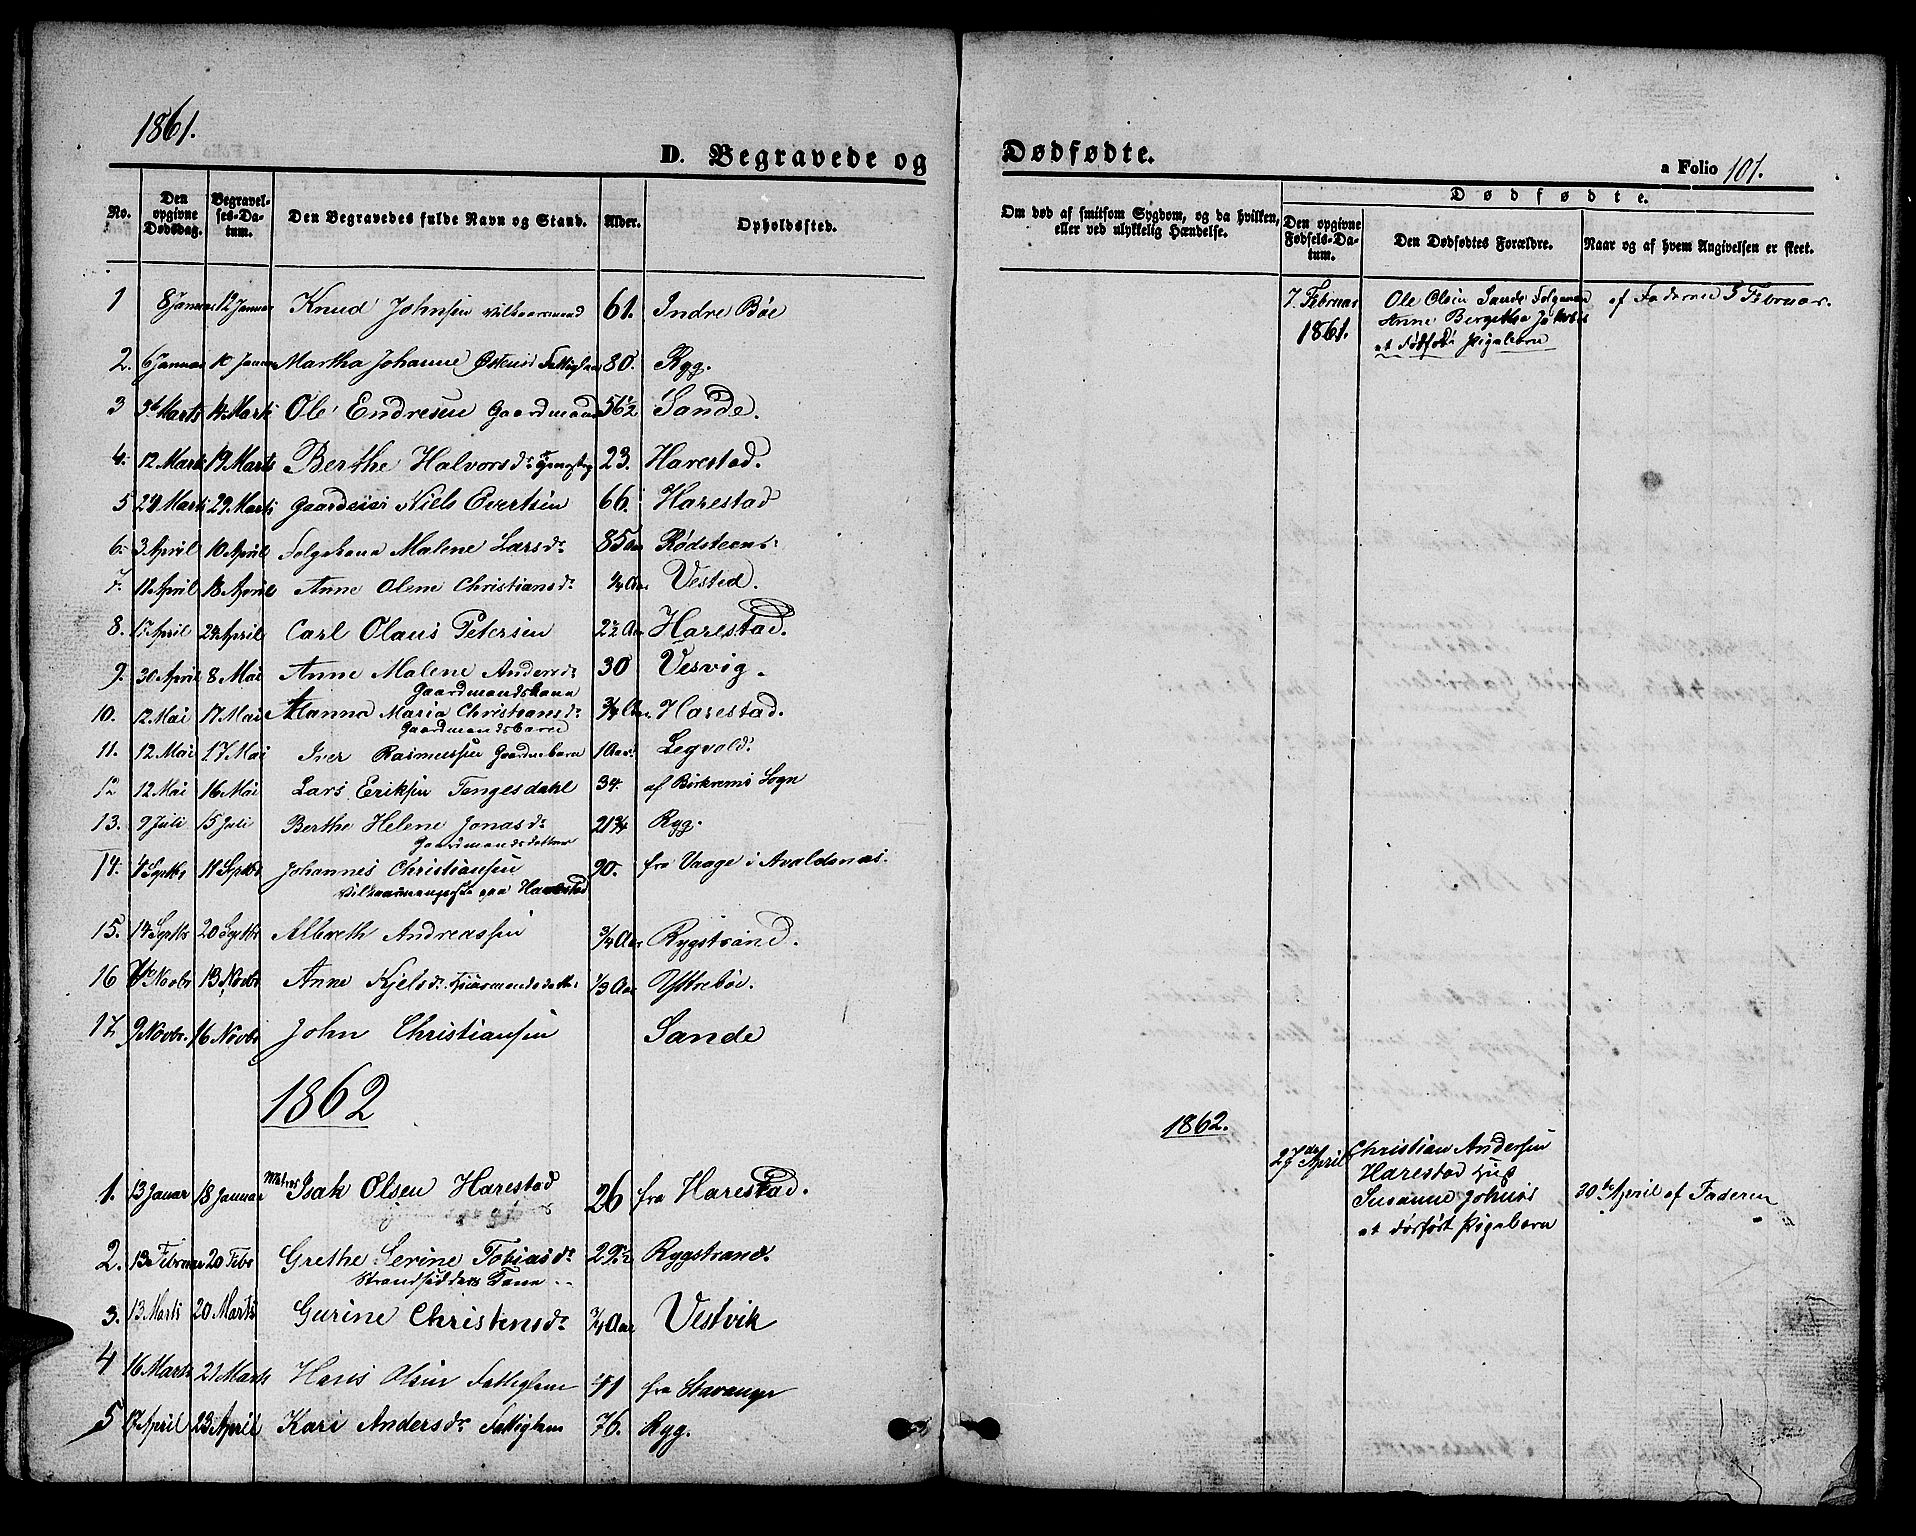 1861.
D. Begravede og
Dødfødte.
a Folio 101.
No.
Den opgivne Dødsdag.
Begravelses-Datum.
Den Begravedes fulde Navn og Stand.
Alder.
Opholdssted.
Om død af smitsom Sygdom, og da hvilken, eller ved ulykkelig Hændelse.
Dødfødte.
Den opgivne Fødsels-Datum.
Den Dødfødtes Forældre.
Naar og af hvem Angivelsen er skeet.
1 8 Januar 12 Januar Knud Johnsen 61. Indre Bøe
2. 6 Januar Martha Johanne 80. Ryg.
3 Marts Marts Ole Endresen Gaardmand 56½ Sande.
4. 12 Marts 19 Marts Berthe Halvorsdr 23. Harestad.
5 Marts 29 Marts Niels Evertsen 66. Harestad
6. 3 April 10 April Malene Larsdr 85 Aar
7. 11 April 18 April Anne Olene Christiansdr ¼ Aar Vested.
8. 17 April 24 April Carl Olaus Petersen 2½ Aar Harestad.
9. 30 April 8 Mai Anne Malene Andersdr 30 Vesvig.
Gaardmandskone
10. 12 Mai 17 Mai Maria Christiansdr ¾ Aar Harestad.
Gaardmandsbarn
11. 12 Mai 17 Mai Iver Rasmussen 1 Aar Legvold.
12 12 Mai 16 Mai Lars Eriksen Tengesdahl 34. af Birkrems Sogn
13. 9 Juli 15 Juli Berthe Helene Jonasdr 21¾ Ryg.
Gaardmandsdatter
14. 4 Septbr 11 Septbr Johannes Christiansen 90. fra Vaage i Avaldsnæs.
paa Harestad
15. 14 Septbr 20 Septbr Albreth Andreassen ¾ Aar Rygstrand.
16 Novbr 13 Novbr Anne Kjelsdr ⅓ Aar Yttrebøe.
17. 9 Novbr. 16 Novbr John Christiansen Sande
1862
1. 13 Januar 18 Januar Isak Olsen Harestad 26 fra Harestad.
2. 13 Februar 20 Febr Grethe Serine Tobiasdr 29½ Rygstrand.
Strandsidders Kone
3. 13 Marts 20 Marts Gurine Christensdr ¾ Aar Vestvik
4 16 Marts 21 Marts Hans Olsen Fattiglem 41 fra Stavanger
5 17 April 23 April Kari Andersdr Fattiglem 76. Ryg.
7. Februar
1861.
Ole Olsen Sande
Anne Bergitha
et dødfødt Pigebarn
af Faderen Februar.
1862.
27de April
Christian Andersen
Harestad
Susanne
et dødfødt Pigebarn
30te April af Faderen